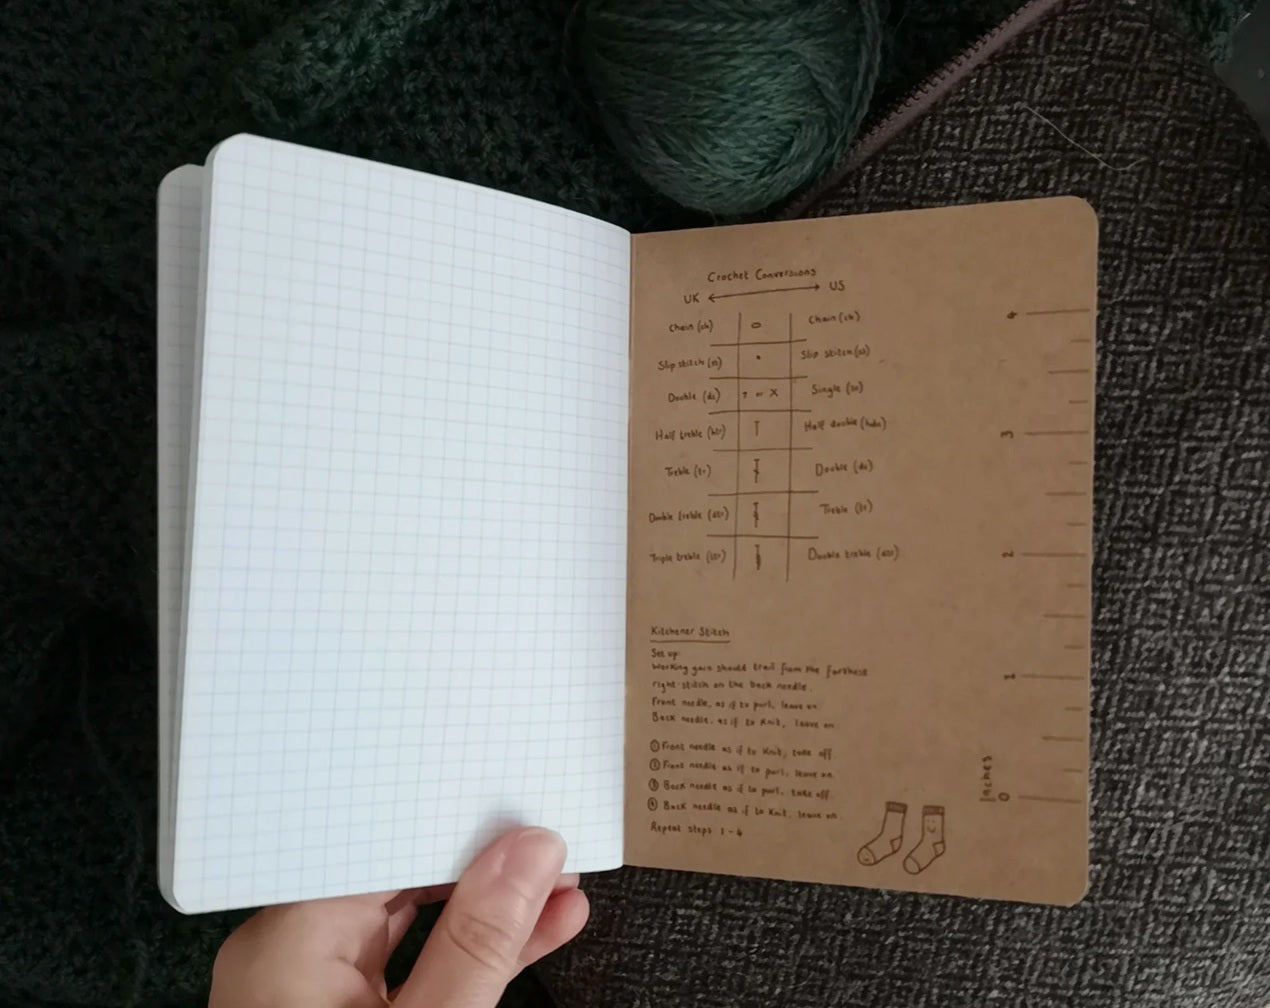 Crochet Conversions
UK ⟷ US
Chain (ch) Chain (ch)
Slip stitch (ss) Slip stitch (ss)
Double (dc) + or X Single (sc)
Half treble (htr) Half double (hdc)
Treble (tr) Double (dc)
Double treble (dtr) Treble (tr)
Triple treble (ttr) Double treble (dtr)
Kitchener Stitch
Set up:
Working yarn should trail from the furthest
right stitch on the back needle.
Front needle, as if to purl, leave on.
Back needle, as if to knit, leave on.
① Front needle as if to knit, take off.
② Front needle as if to purl, leave on.
③ Back needle as if to purl, take off.
④ Back needle as if to knit, leave on.
Repeat steps 1-4
4
3
2
1
0
Inches